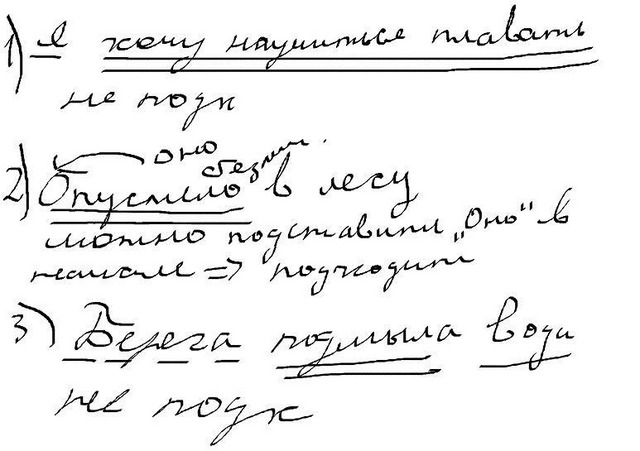 1) Я хочу научиться плавать
не подх
оно
безлич.
2) Опустело в лесу
можно подставить "Оно" в
начале => подходит
3) Берега подмыла вода
не подх